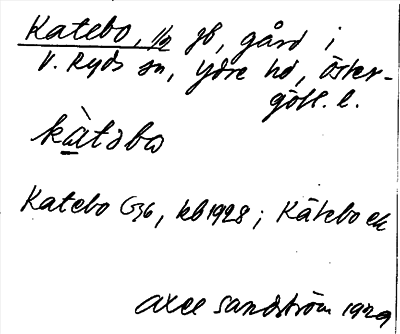 Katebo, 1/2 gd, gård i
V. Ryds sn, Ydre hd, Öster-
götl. l.
kàtəbω
Katebo G36, kb 1928; Kátebo ek
Axel Sandström 1929